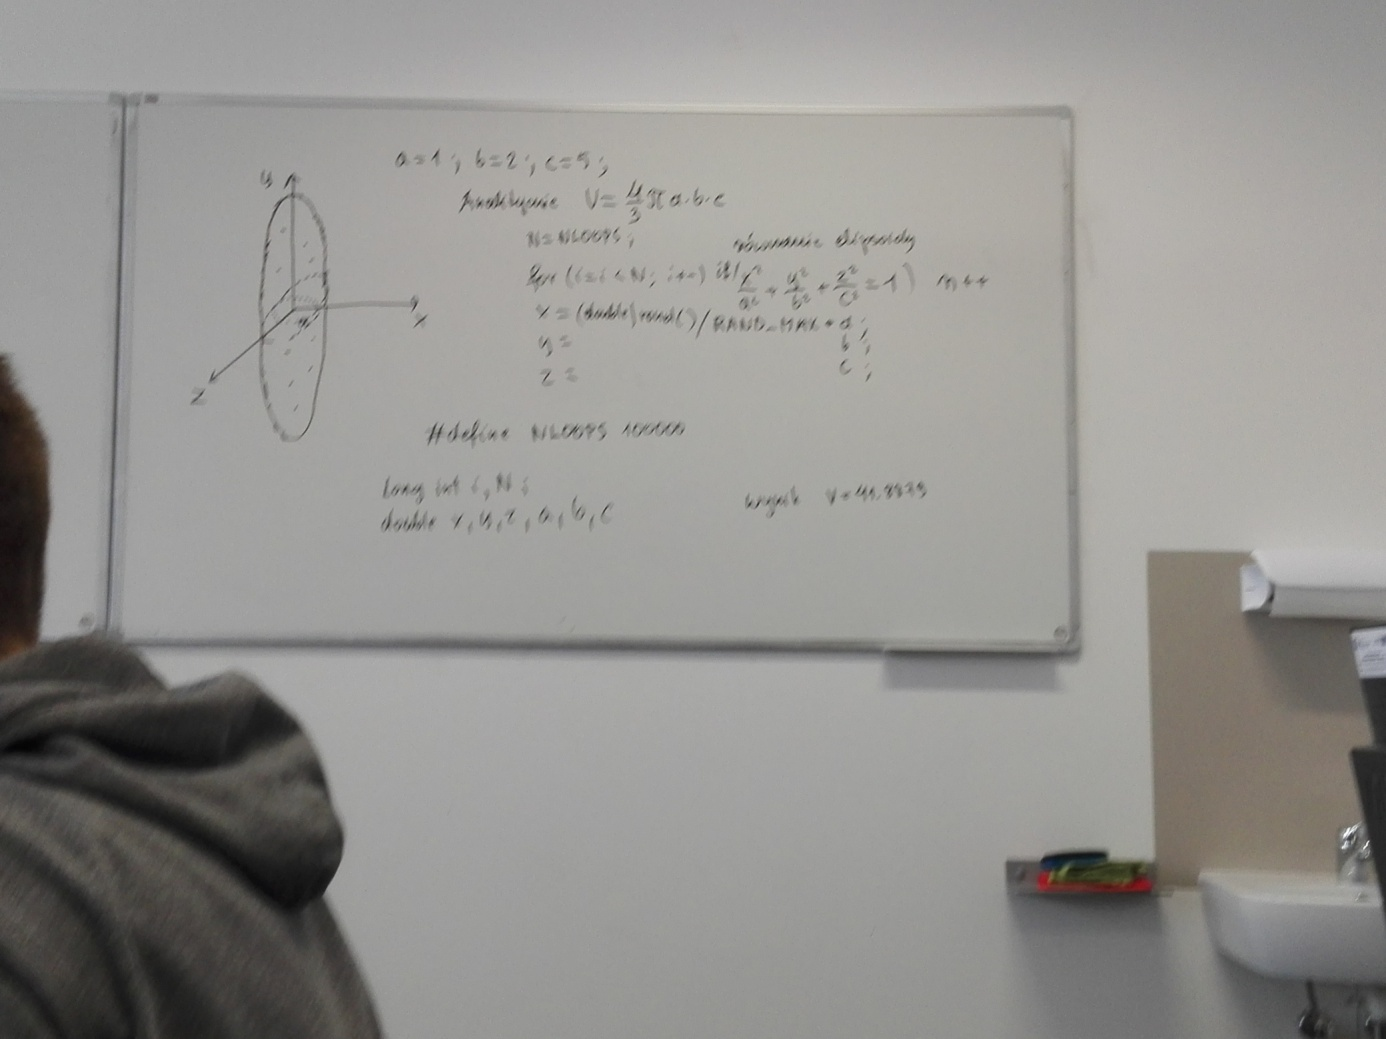 a=1; b=2; c=5;
y
Analitycznie V= 4/3 π a·b·c
N=NLOOPS;
równanie elipsoidy
for (i=i<N; i++) if( x²/a² + y²/b² + z²/c² = 1) n++
x = (double)rand()/RAND_MAX * a;
y = b;
z = c;
x
z
#define NLOOPS 100000
long int i, N;
double x, y, z, a, b, c
wynik V=41.8879